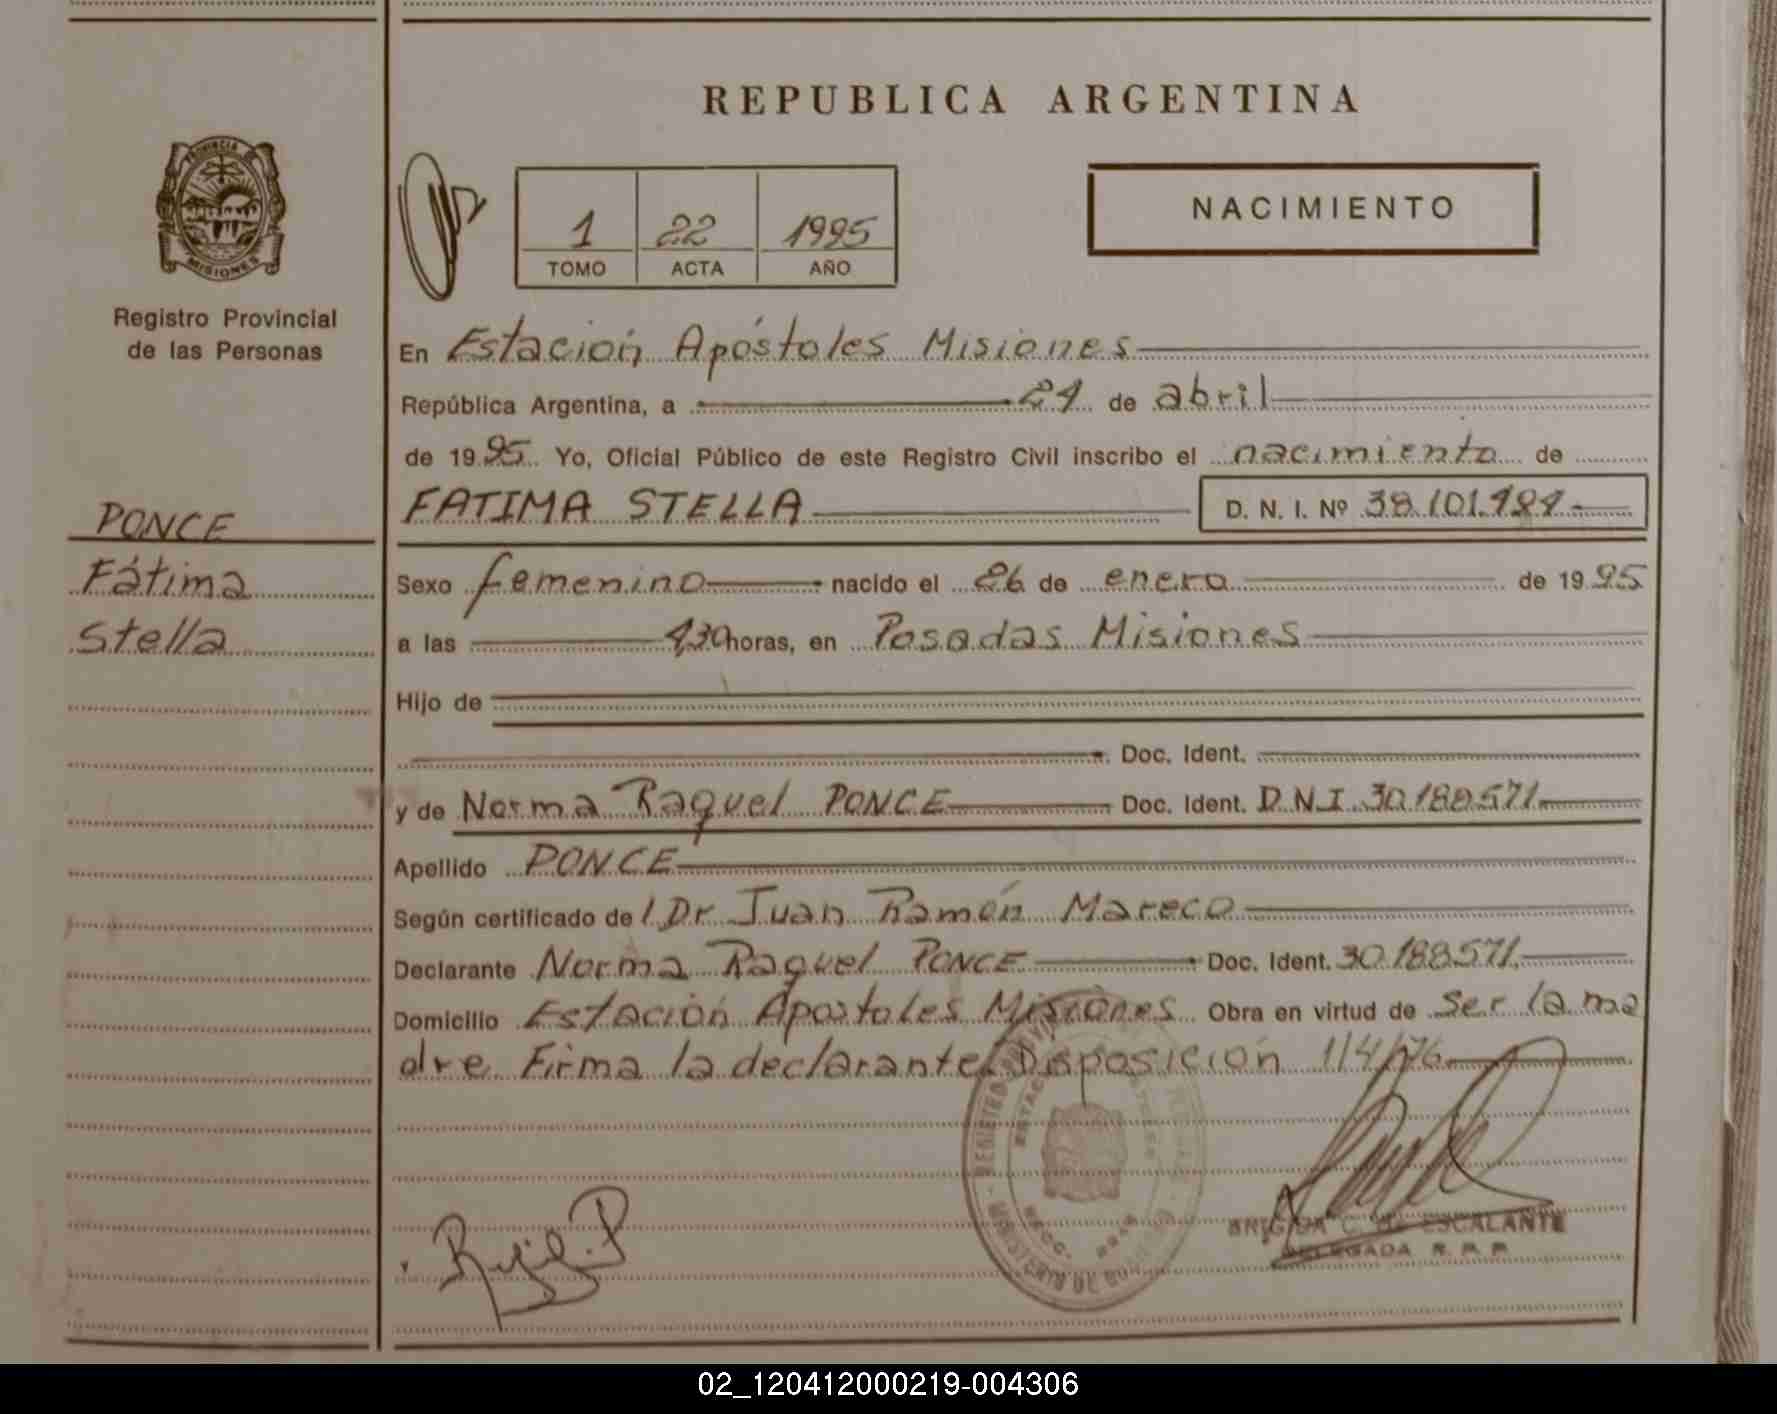 REPUBLICA ARGENTINA
PROVINCIA DE
MISIONES
Registro Provincial
de las Personas
1 22 1995
TOMO ACTA AÑO
NACIMIENTO
En Estación Apóstoles Misiones
República Argentina, a 21 de abril
de 1995 Yo, Oficial Público de este Registro Civil inscribo el nacimiento de
PONCE
Fátima
Stella
FATIMA STELLA D. N. I. Nº 38.101.
Sexo femenino nacido el 26 de enero de 1995
a las horas, en Posadas Misiones
Hijo de
Doc. Ident.
y de Norma Raquel PONCE Doc. Ident. D.N.I. 30.188.571
Apellido PONCE
Según certificado del Dr Juan Ramón Mareco
Declarante Norma Raquel PONCE Doc. Ident. 30.188571
Domicilio Estación Apostoles Misiones Obra en virtud de ser la ma
dre Firma la declarante Disposición 1/4/76
BRIGIDA C. DE ESCALANTE
DELEGADA R. P. P.
02_120412000219-004306